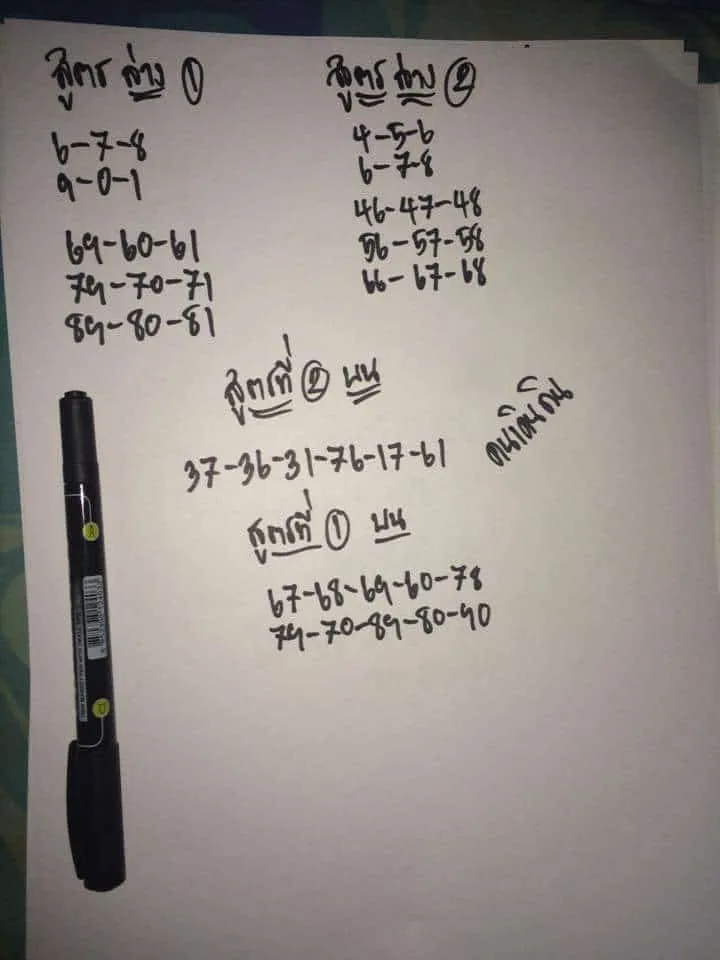 สูตร ล่าง ①
6-7-8
9-0-1
69-60-61
79-70-71
89-80-81
สูตร ล่าง ②
4-5-6
6-7-8
46-47-48
56-57-58
66-67-68
สูตรที่ ② บน
37-36-31-76-17-61
คนเดินดิน
สูตรที่ ① บน
67-68-69-60-78
79-70-89-80-90